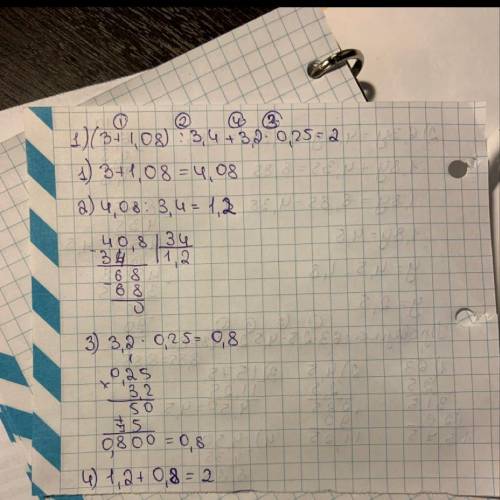 ① ② ④ ③
1) (3+1,08) : 3,4 + 3,2 · 0,25 = 2
1) 3+1,08 = 4,08
2) 4,08 : 3,4 = 1,2
- 40,8 | 34
34 | 1,2
- 68
68
0
3) 3,2 · 0,25 = 0,8
1
× 0,25
3,2
50
+ 75
0,800 = 0,8
4) 1,2 + 0,8 = 2